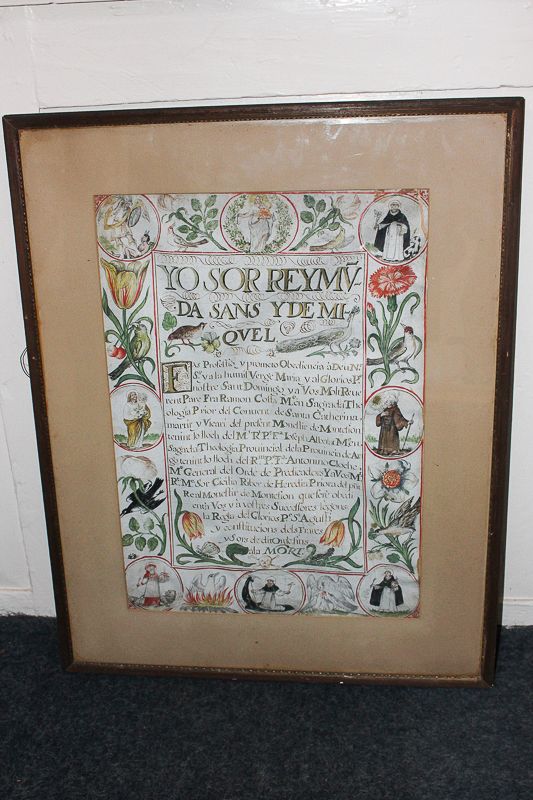 YO SOR REYMŨ-
DA SANS Y DE MI-
QVEL
Fas Professió, y prometo Obediencia à Deu Nr̃.
Sr̃. y a la humil Verge Maria, y al Glorios P.
nostre Sant Domingo, y a Vos Molt Reve
rent Pare Fra Ramon Costa Mr̃. en Sagrada Theo
logia Prior del Convent de Santa Catherina
martir y Vicari del present Monestir de Montesion
tenint lo lloch del M. R. P. F. Joseph Mr̃. en
Sagrada Theologia Provincial de la Provincia de Ara
gó tenint lo lloch del R. P. F. Antonino Cloche
Mr̃. General del Orde de Predicadors Ya Vos M.
R. M. Sor Cicilia Ribot de Heredia Priora del pñt
Real Monestir de Montesion que seré obedi
ent à Vos y à vostres Successores segons
la Regla del Glorios P. S. Agusti
y constitucions dels Frares
y Sors de dit Orde fins
a la MORT.